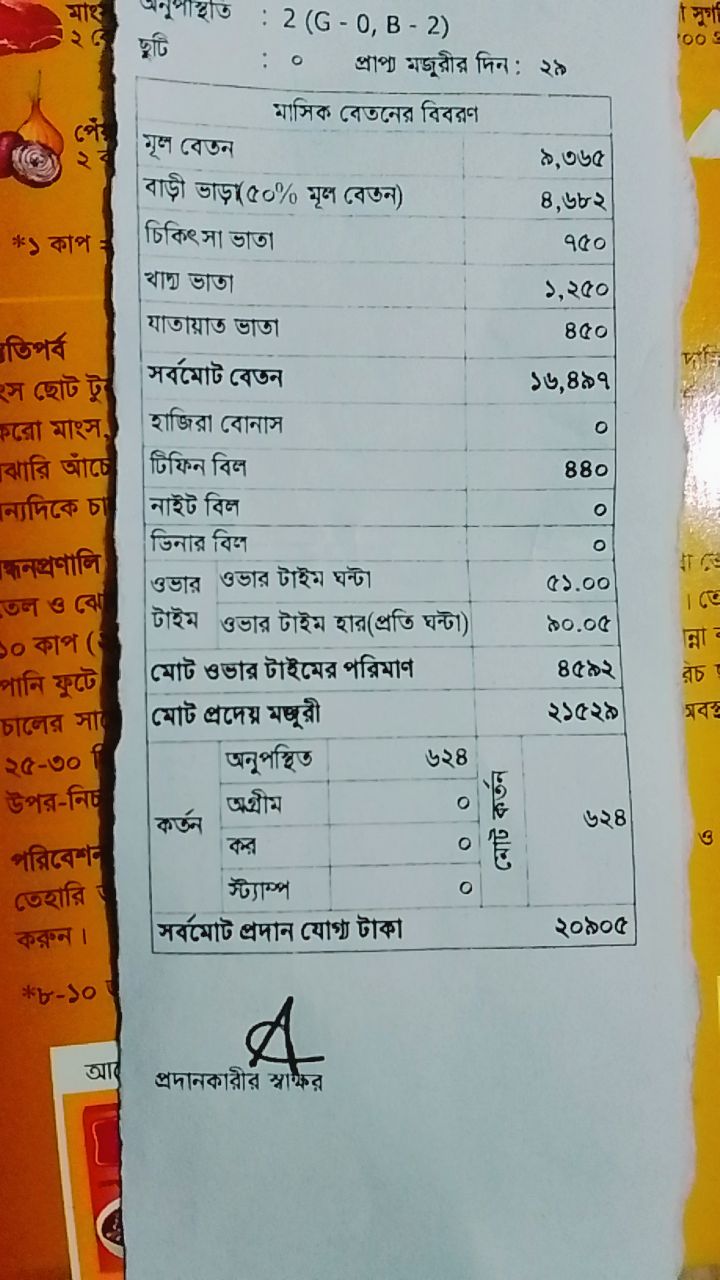 অনুপস্থিতি : 2 (G - 0, B - 2)
ছুটি : ০ প্রাপ্য মজুরীর দিন : ২৯
মাসিক বেতনের বিবরণ
মূল বেতন ৯,৩৬৫
বাড়ী ভাড়া(৫০% মূল বেতন) ৪,৬৮২
চিকিৎসা ভাতা ৭৫০
খাদ্য ভাতা ১,২৫০
যাতায়াত ভাতা ৪৫০
সর্বমোট বেতন ১৬,৪৯৭
হাজিরা বোনাস ০
টিফিন বিল ৪৪০
নাইট বিল ০
ডিনার বিল ০
ওভার টাইম
ওভার টাইম ঘন্টা ৫১.০০
ওভার টাইম হার(প্রতি ঘন্টা) ৯০.০৫
মোট ওভার টাইমের পরিমাণ ৪৫৯২
মোট প্রদেয় মজুরী ২১৫২৯
কর্তন
অনুপস্থিত ৬২৪
অগ্রীম ০
কর ০
স্ট্যাম্প ০
মোট কর্তন ৬২৪
সর্বমোট প্রদান যোগ্য টাকা ২০৯০৫
প্রদানকারীর স্বাক্ষর
*১ কাপ
ছোট
মাংস,
আঁচে
তেল ও
১০ কাপ
পানি ফুটে
চালের
২৫-৩০
উপর-নিচ
পরিবেশন
তেহারি
করুন।
*৮-১০
ও